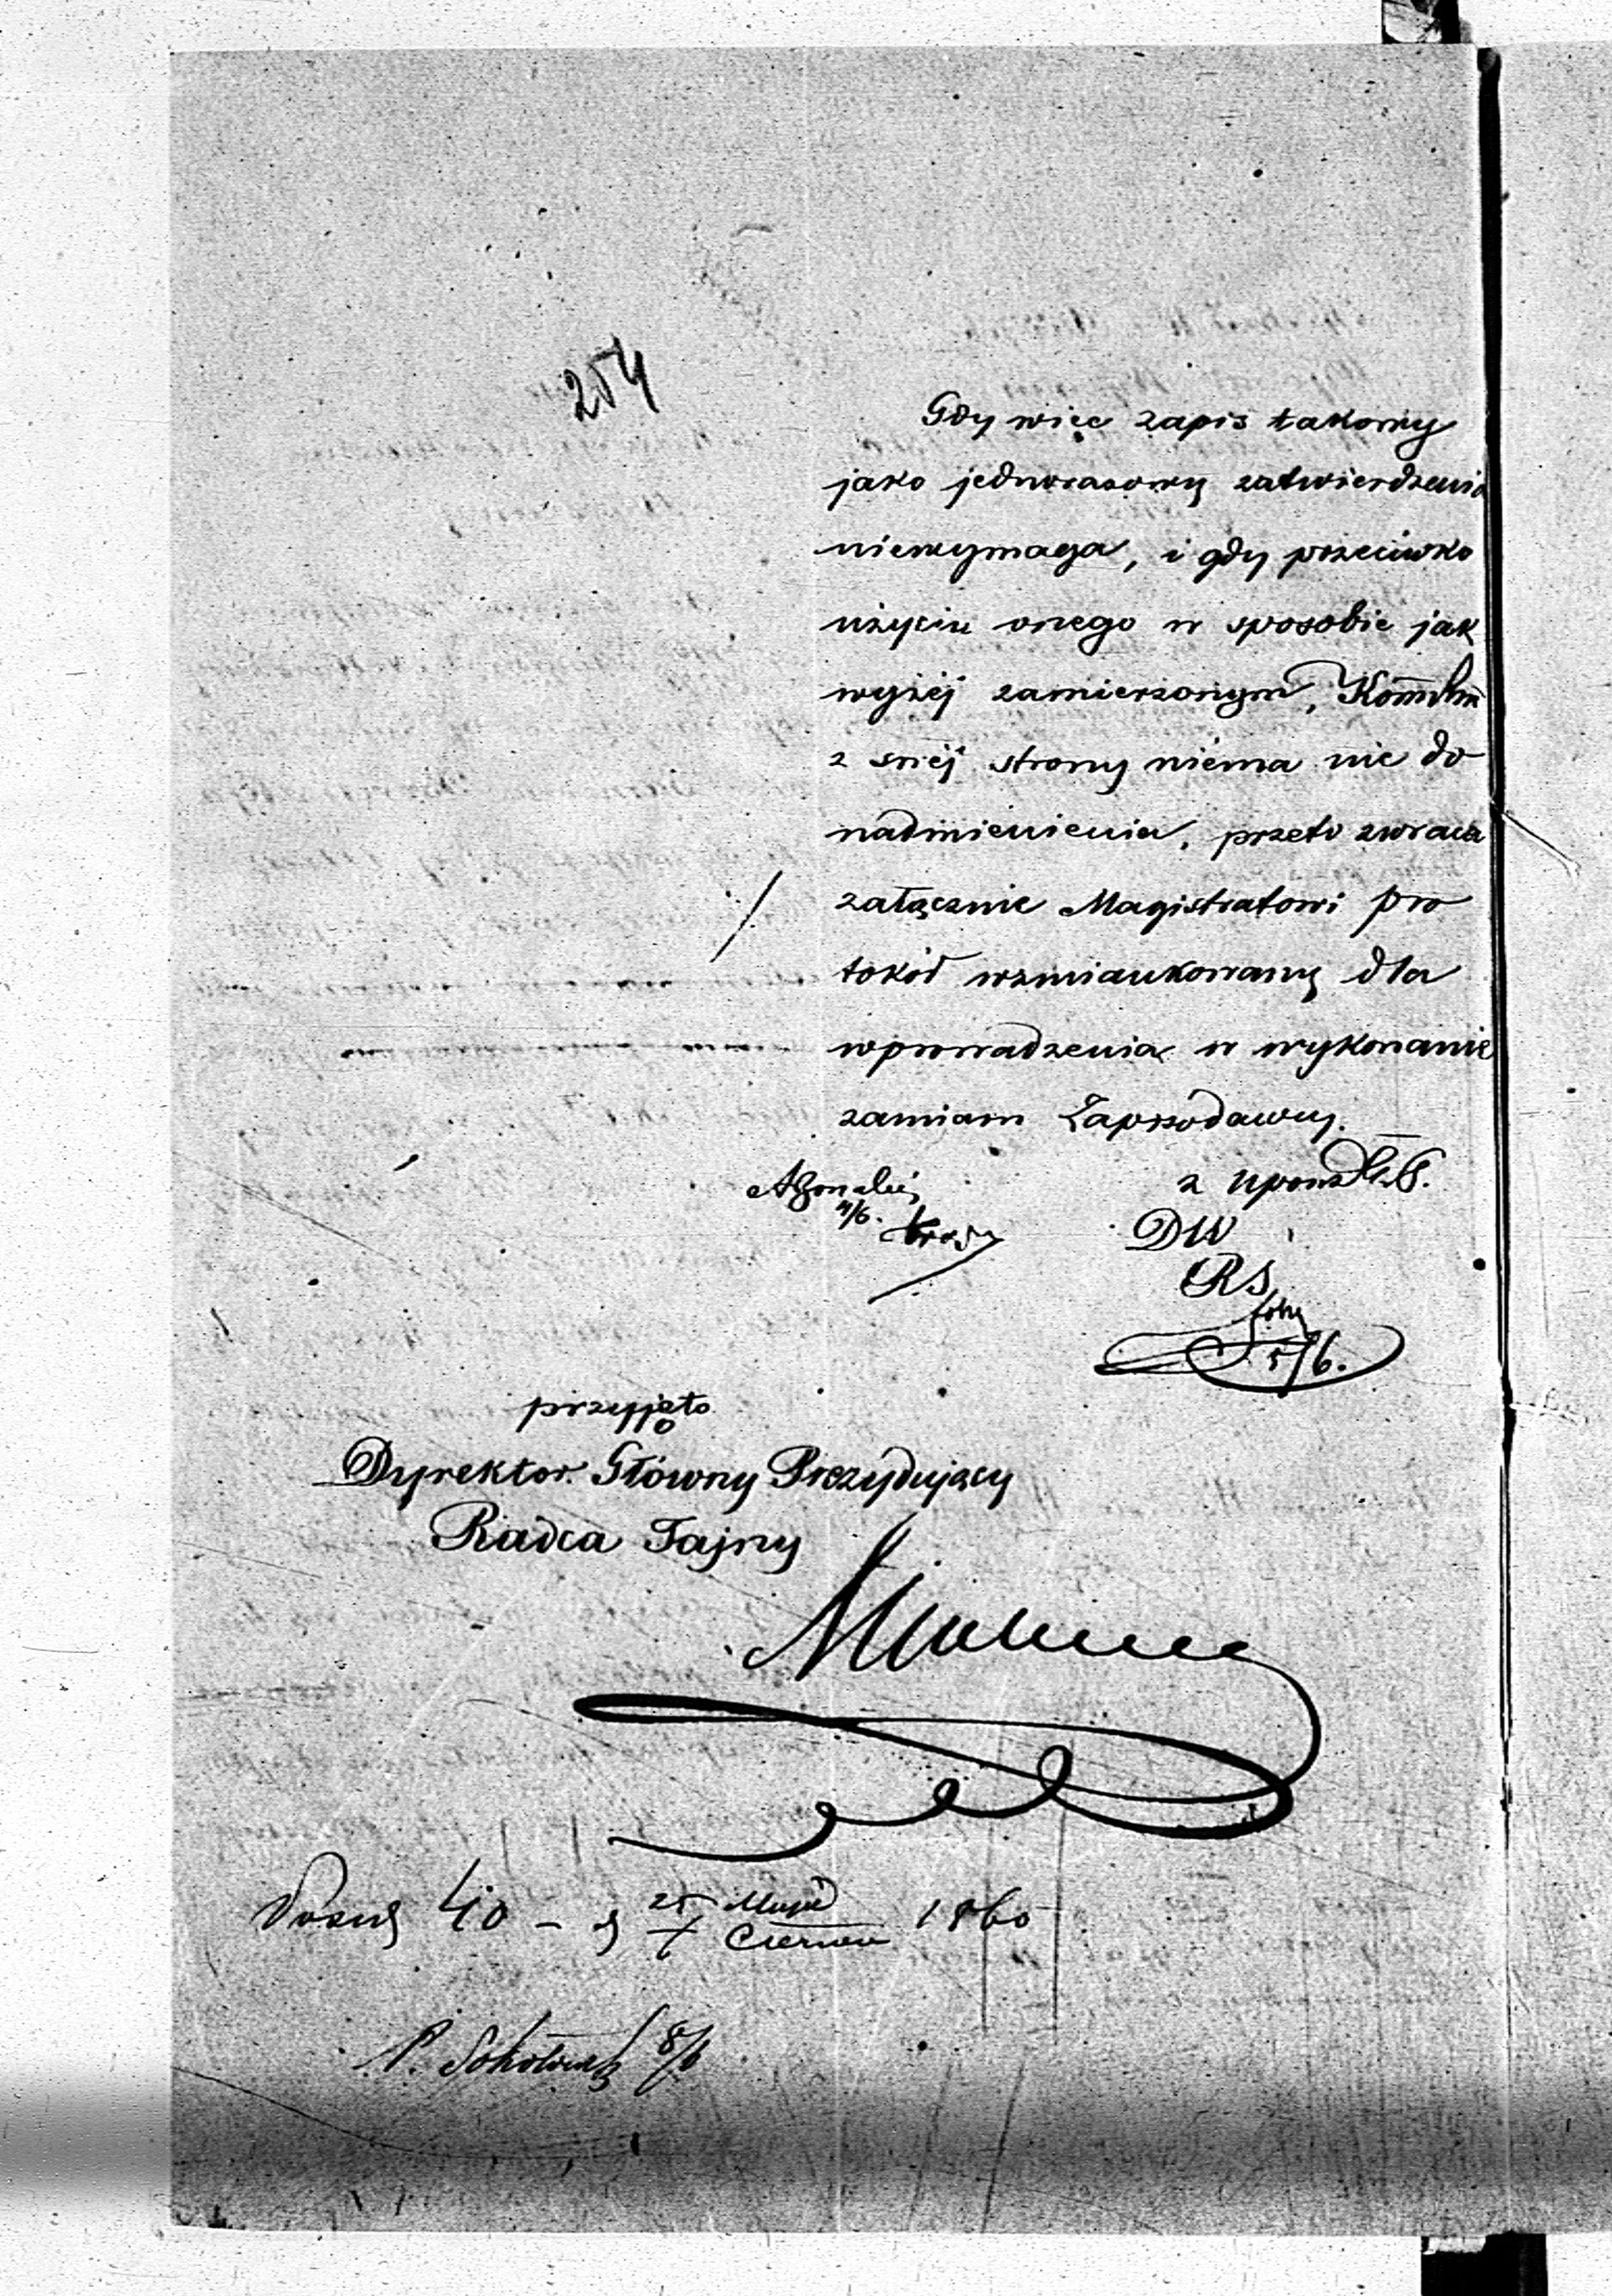 254
Gdy więc zapis takowy
jako jednorazowy zatwierdzenia
niewymaga, i gdy przeciwko
użyciu onego w sposobie jak
wyżéj zamierzonym, Kom̄
z swéj strony niéma nic do
nadmienienia, przeto zwraca
załącznie Magistratowi pro
tokół wzmiankowany dla
wprowadzenia w wykonanie
zamiaru Zapisodawcy.
z upow
4/6.
DW
RS
5/6.
przyjęto
Dyrektor Główny Prezydujący
Radca Tajny
40 - d 25 Maja
Czerwca 1860
8/6